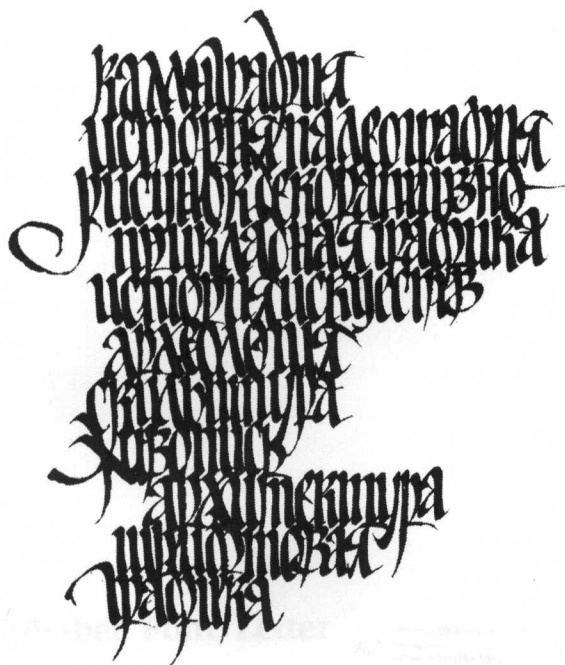 каллиграфия
история палеография
рисунок декоративно
прикладная графика
история искусств
археология
скульптура
живопись
архитектура
шрифтовая
графика